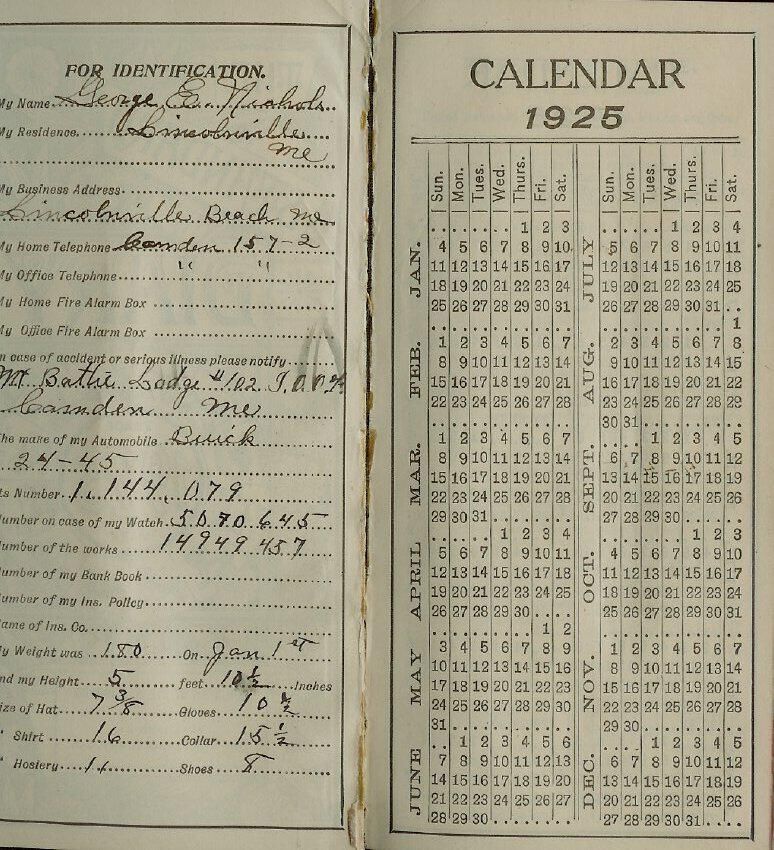 FOR IDENTIFICATION.
My Name George E. Nichols
My Residence Lincolnville
Me
My Business Address
Lincolnville Beach Me
My Home Telephone Camden 157-2
My Office Telephone " "
My Home Fire Alarm Box
My Office Fire Alarm Box
In case of accident or serious illness please notify
Mt Battie Lodge #102 I.O.O.F.
Camden Me
The make of my Automobile Buick
24-45
Its Number 1.144.079
Number on case of my Watch 5070645
Number of the works 14949457
Number of my Bank Book
Number of my Ins. Policy
Name of Ins. Co.
My Weight was 180 On Jan 1st
and my Height 5 feet 10 1/2 Inches
Size of Hat 7 3/8 Gloves 10 1/2
" Shirt 16 Collar 15 1/2
" Hosiery 11 Shoes 8
CALENDAR
1925
Sun. Mon. Tues. Wed. Thurs. Fri. Sat.
JAN.
1 2 3
4 5 6 7 8 9 10
11 12 13 14 15 16 17
18 19 20 21 22 23 24
25 26 27 28 29 30 31
FEB.
1 2 3 4 5 6 7
8 9 10 11 12 13 14
15 16 17 18 19 20 21
22 23 24 25 26 27 28
MAR.
1 2 3 4 5 6 7
8 9 10 11 12 13 14
15 16 17 18 19 20 21
22 23 24 25 26 27 28
29 30 31
APRIL
1 2 3 4
5 6 7 8 9 10 11
12 13 14 15 16 17 18
19 20 21 22 23 24 25
26 27 28 29 30
MAY
1 2
3 4 5 6 7 8 9
10 11 12 13 14 15 16
17 18 19 20 21 22 23
24 25 26 27 28 29 30
31
JUNE
1 2 3 4 5 6
7 8 9 10 11 12 13
14 15 16 17 18 19 20
21 22 23 24 25 26 27
28 29 30
Sun. Mon. Tues. Wed. Thurs. Fri. Sat.
JULY
1 2 3 4
5 6 7 8 9 10 11
12 13 14 15 16 17 18
19 20 21 22 23 24 25
26 27 28 29 30 31
AUG.
1
2 3 4 5 6 7 8
9 10 11 12 13 14 15
16 17 18 19 20 21 22
23 24 25 26 27 28 29
30 31
SEPT.
1 2 3 4 5
6 7 8 9 10 11 12
13 14 15 16 17 18 19
20 21 22 23 24 25 26
27 28 29 30
OCT.
1 2 3
4 5 6 7 8 9 10
11 12 13 14 15 16 17
18 19 20 21 22 23 24
25 26 27 28 29 30 31
NOV.
1 2 3 4 5 6 7
8 9 10 11 12 13 14
15 16 17 18 19 20 21
22 23 24 25 26 27 28
29 30
DEC.
1 2 3 4 5
6 7 8 9 10 11 12
13 14 15 16 17 18 19
20 21 22 23 24 25 26
27 28 29 30 31